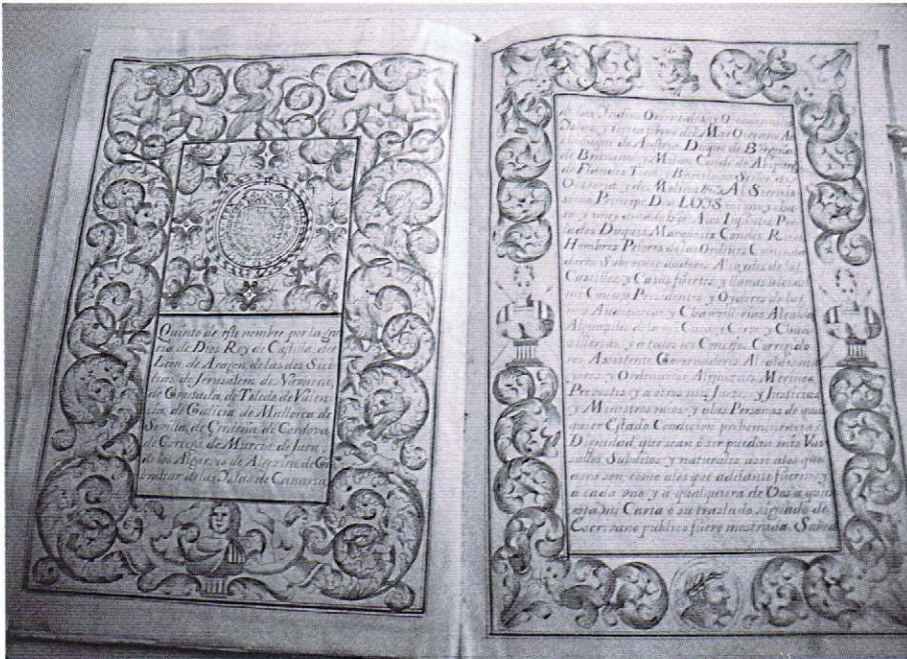 Quinto de este nombre por la gra
cia de Dios Rey de Castilla, de
Leon de Aragon, de las dos Sici
lias, de Jerusalem, de Navarra,
de Granada, de Toledo, de Valen
cia, de Galicia, de Mallorca, de
Sevilla, de Cerdeña, de Cordova,
de Corcega, de Murcia, de Jaen,
de los Algarves de Algezira, de Gi
braltar, de las Islas de Canaria,
de las Indias Orientales y Occidentales
Islas, y tierra firme del Mar Oceano Ar
duque de Austria Duque de Borgoña
de Bravante y Milan Conde de Abspurg
de Flandes Tirol y Barcelona Señor de
Vizcaya, y de Molina &c. Al Sereniss
simo Principe D. LUYS mi muy cha
ro y muy amado hijo A los Infantes Pre
lados Duques Marqueses Condes Ricos
Hombres Priores de las Ordenes Comenda
dores Subcomendadores Alcaydes de los
Castillos, y Casas fuertes, y llanas, y los del
mi Consejo Presidentes, y Oydores de las
mis Audiencias y Chanzillerias Alcaldes
Alguaziles de la mi Casa, y Corte y Chan
zillerias, y a todos los Concejos Corregido
res Asistente Governadores Alcaldes ma
yores y Ordinarios Alguaziles Merinos
Prevostes y a otros mis Juezes, y Justicias
y Ministros mios, y a las Personas de qual
quier Estado Condicion preheminencia, ò
Dignidad que sean ò ser puedan mis Vas
sallos Subditos y naturales assi a los que
aora son, como a los que adelante fueren y
a cada uno, y a qualquiera de Vos a quien
esta mi Carta ò su traslado signado de
Escrivano publico fuere mostrada. Sabed